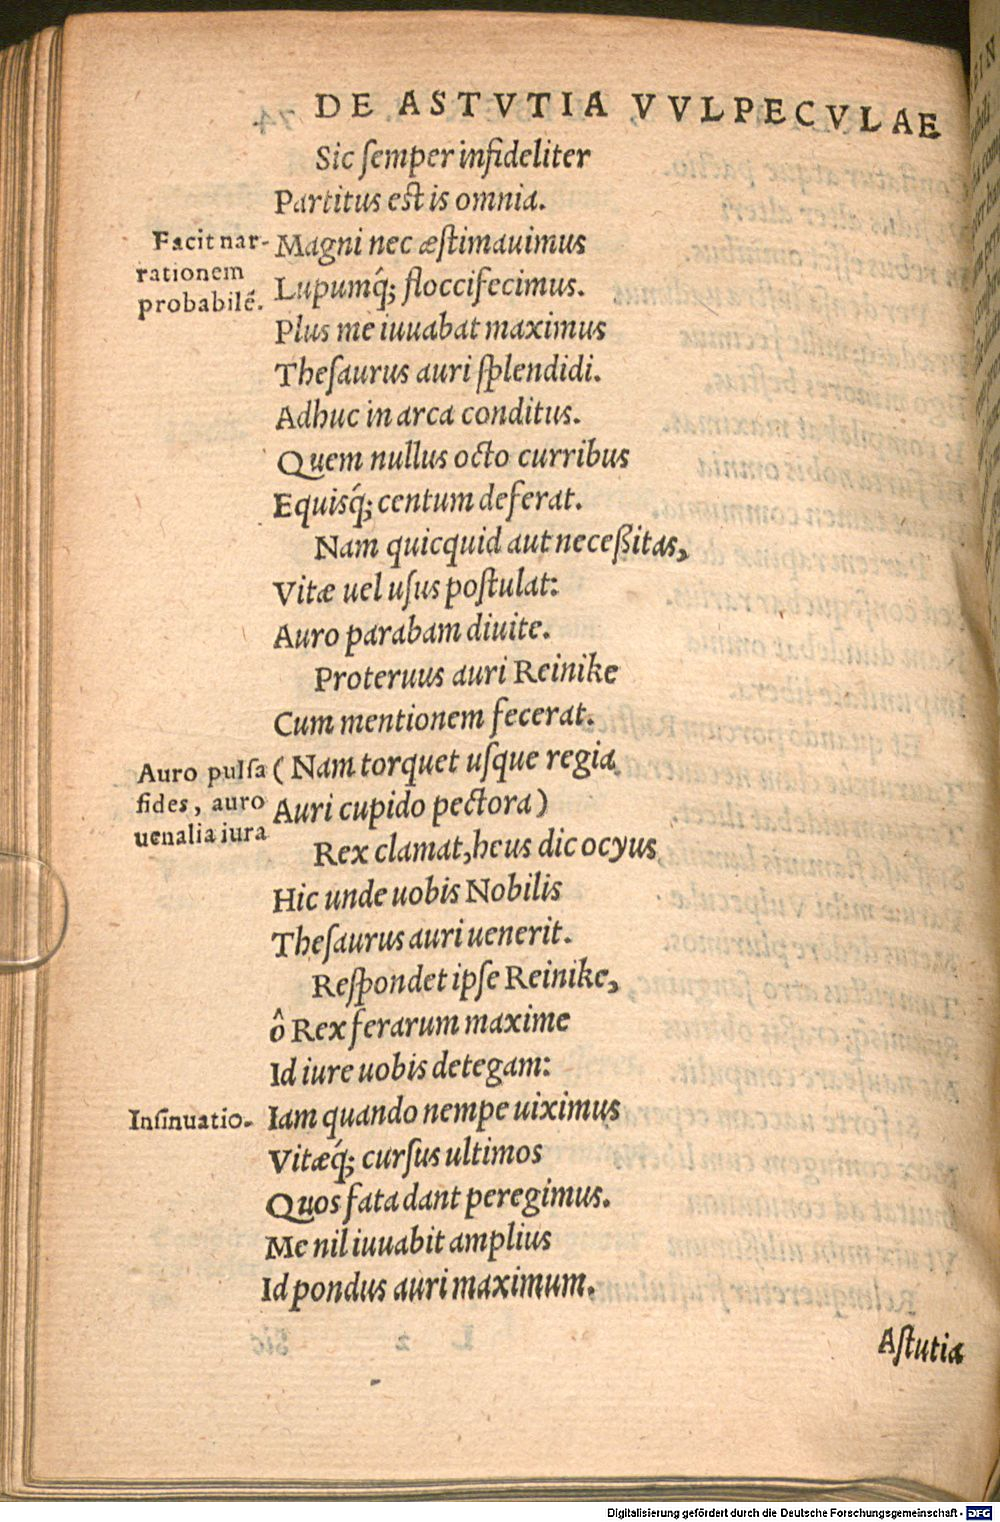 DE ASTVTIA VVLPECVLAE
Sic ſemper infideliter
Partitus est is omnia.
Facit nar-
rationem
probabilẽ.
Magni nec æſtimauimus
Lupumq́; flocciſecimus.
Plus me iuuabat maximus
Theſaurus auri ſplendidi.
Adhuc in arca conditus.
Quem nullus octo curribus
Equisq́; centum deferat.
Nam quicquid aut neceßitas,
Vitæ uel uſus poſtulat:
Auro parabam diuite.
Proteruus auri Reinike
Cum mentionem fecerat.
Auro pulſa
fides, auro
uenalia iura
(Nam torquet uſque regia
Auri cupido pectora)
Rex clamat, heus dic ocyus
Hic unde uobis Nobilis
Theſaurus auri uenerit.
Reſpondet ipſe Reinike,
ô Rex ferarum maxime
Id iure uobis detegam:
Inſinuatio.
Iam quando nempe uiximus
Vitæq́; curſus ultimos
Quos fata dant peregimus.
Me nil iuuabit amplius
Id pondus auri maximum.
Aſtutia
Digitalisierung gefördert durch die Deutsche Forschungsgemeinschaft - DFG